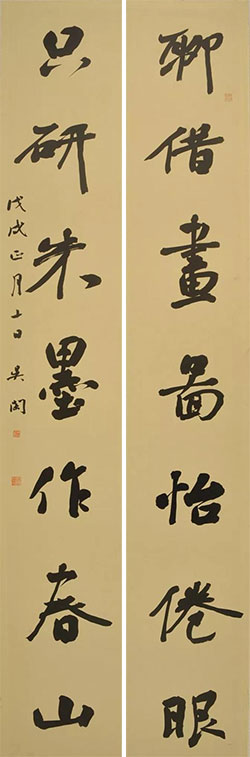 聊借畫圖怡倦眼
只研朱墨作春山
戊戌正月十日 吴闵